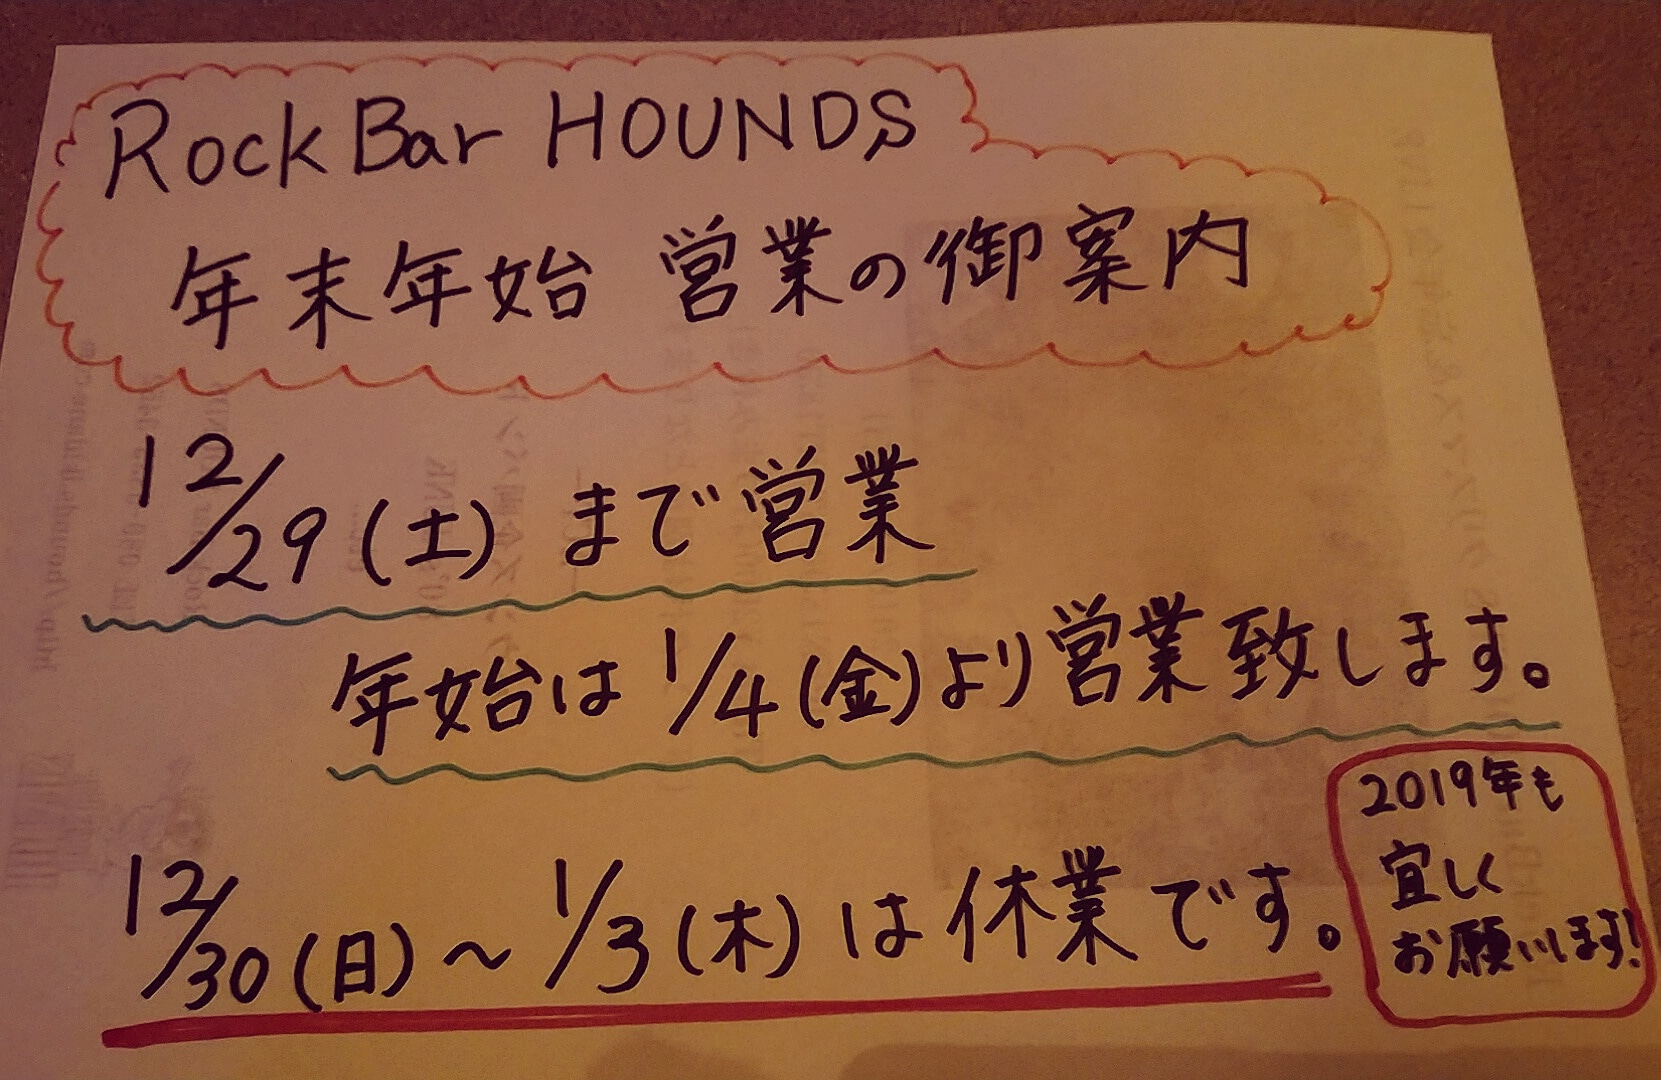 Rock Bar HOUNDS
年末年始 営業の御案内
12/29(土)まで営業
年始は1/4(金)より営業致します。
12/30(日)～1/3(木)は休業です。
2019年も
宜しく
お願いします!